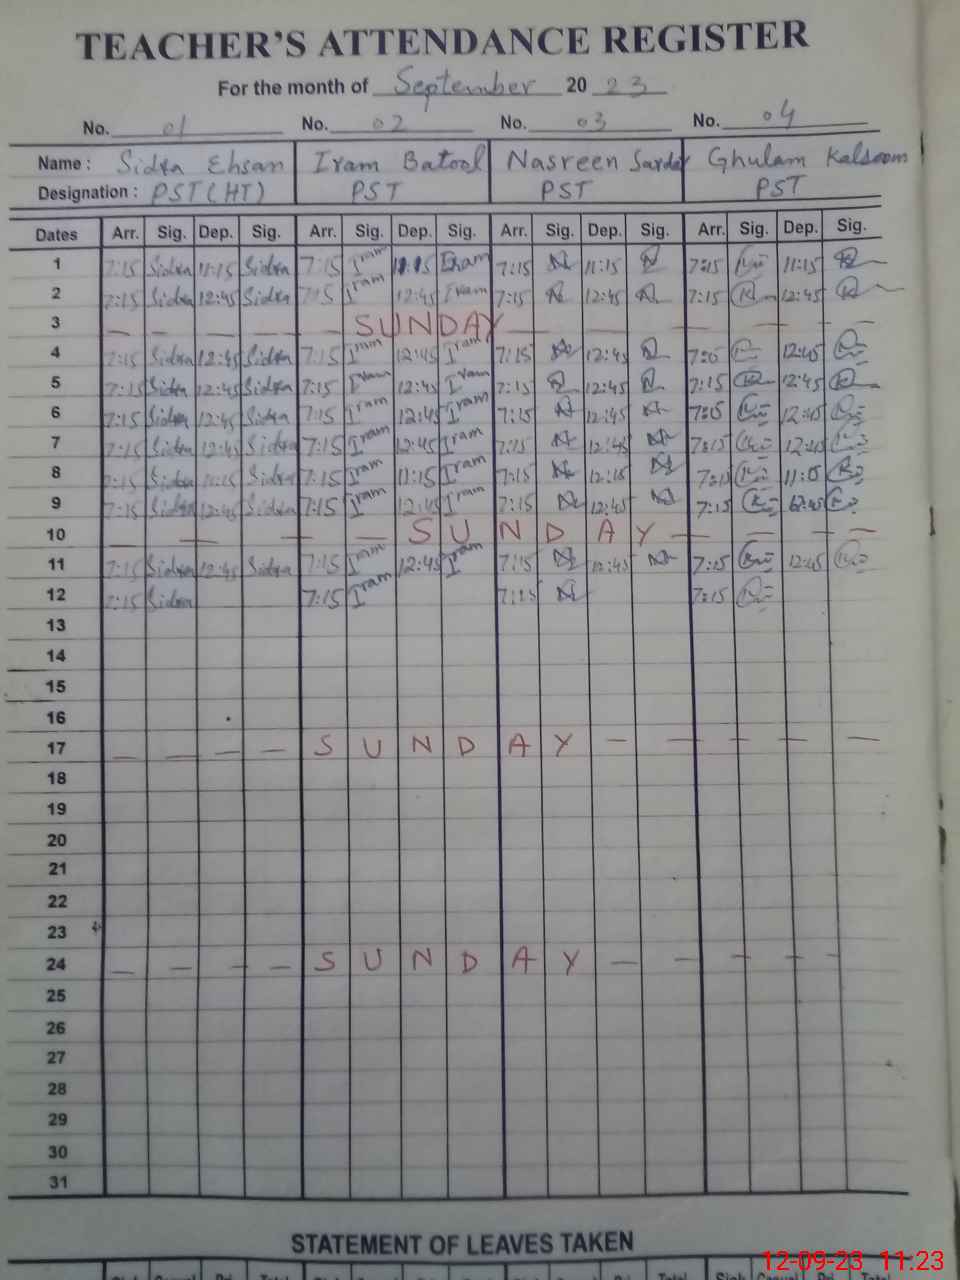 TEACHER'S ATTENDANCE REGISTER
For the month of September 20 23
No. 01 No. 02 No. 03 No. 04
Name : Sidra Ehsan Iram Batool Nasreen Sardar Ghulam Kalsoom
Designation : PST(HT) PST PST PST
Dates Arr. Sig. Dep. Sig. Arr. Sig. Dep. Sig. Arr. Sig. Dep. Sig. Arr. Sig. Dep. Sig.
1 7:15 Sidra 11:15 Sidra 7:15 Iram 11:15 Iram 7:15 11:15 7:15 11:15
2 7:15 Sidra 12:45 Sidra 7:15 Iram 12:45 Iram 7:15 12:45 7:15 12:45
3 — — — — — SUNDAY — — — — — —
4 7:15 Sidra 12:45 Sidra 7:15 Iram 12:45 Iram 7:15 12:45 7:15 12:45
5 7:15 Sidra 12:45 Sidra 7:15 Iram 12:45 Iram 7:15 12:45 7:15 12:45
6 7:15 Sidra 12:45 Sidra 7:15 Iram 12:45 Iram 7:15 12:45 7:15 12:45
7 7:15 Sidra 12:45 Sidra 7:15 Iram 12:45 Iram 7:15 12:45 7:15 12:45
8 7:15 Sidra 11:15 Sidra 7:15 Iram 11:15 Iram 7:15 7:15
9 7:15 Sidra 12:45 Sidra 7:15 Iram 12:45 Iram 7:15 12:45 7:15 12:45
10 — — — — SUNDAY — — — —
11 7:15 Sidra 12:45 Sidra 7:15 Iram 12:45 Iram 7:15 12:45 7:15 12:45
12 7:15 Sidra 7:15 Iram 7:15 7:15
13
14
15
16
17 — — — — S U N D A Y — — — — — —
18
19
20
21
22
23
24 — — — — S U N D A Y — — — — —
25
26
27
28
29
30
31
STATEMENT OF LEAVES TAKEN
12-09-23 11:23